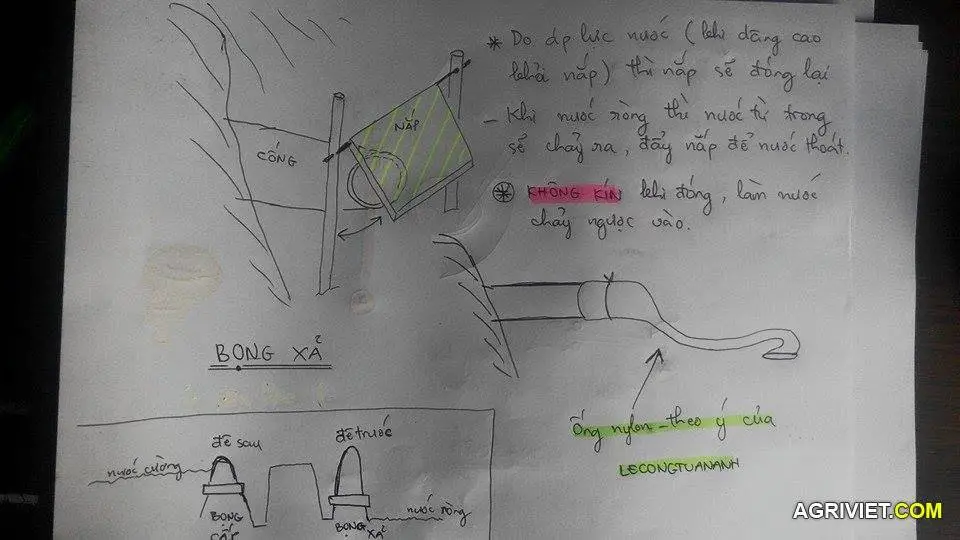 * Do áp lực nước (khi dâng cao
khỏi nắp) thì nắp sẽ đóng lại
- Khi nước ròng thì nước từ trong
sẽ chảy ra, đẩy nắp để nước thoát.
* KHÔNG KÍN khi đóng, làm nước
chảy ngược vào.
NẮP
CỐNG
BỌNG XẢ
Ống nylon - theo ý của
LECONGTUANANH
đê sau
đê trước
nước cường
nước ròng
BỌNG
CẤP
BỌNG XẢ
AGRIVIET.COM